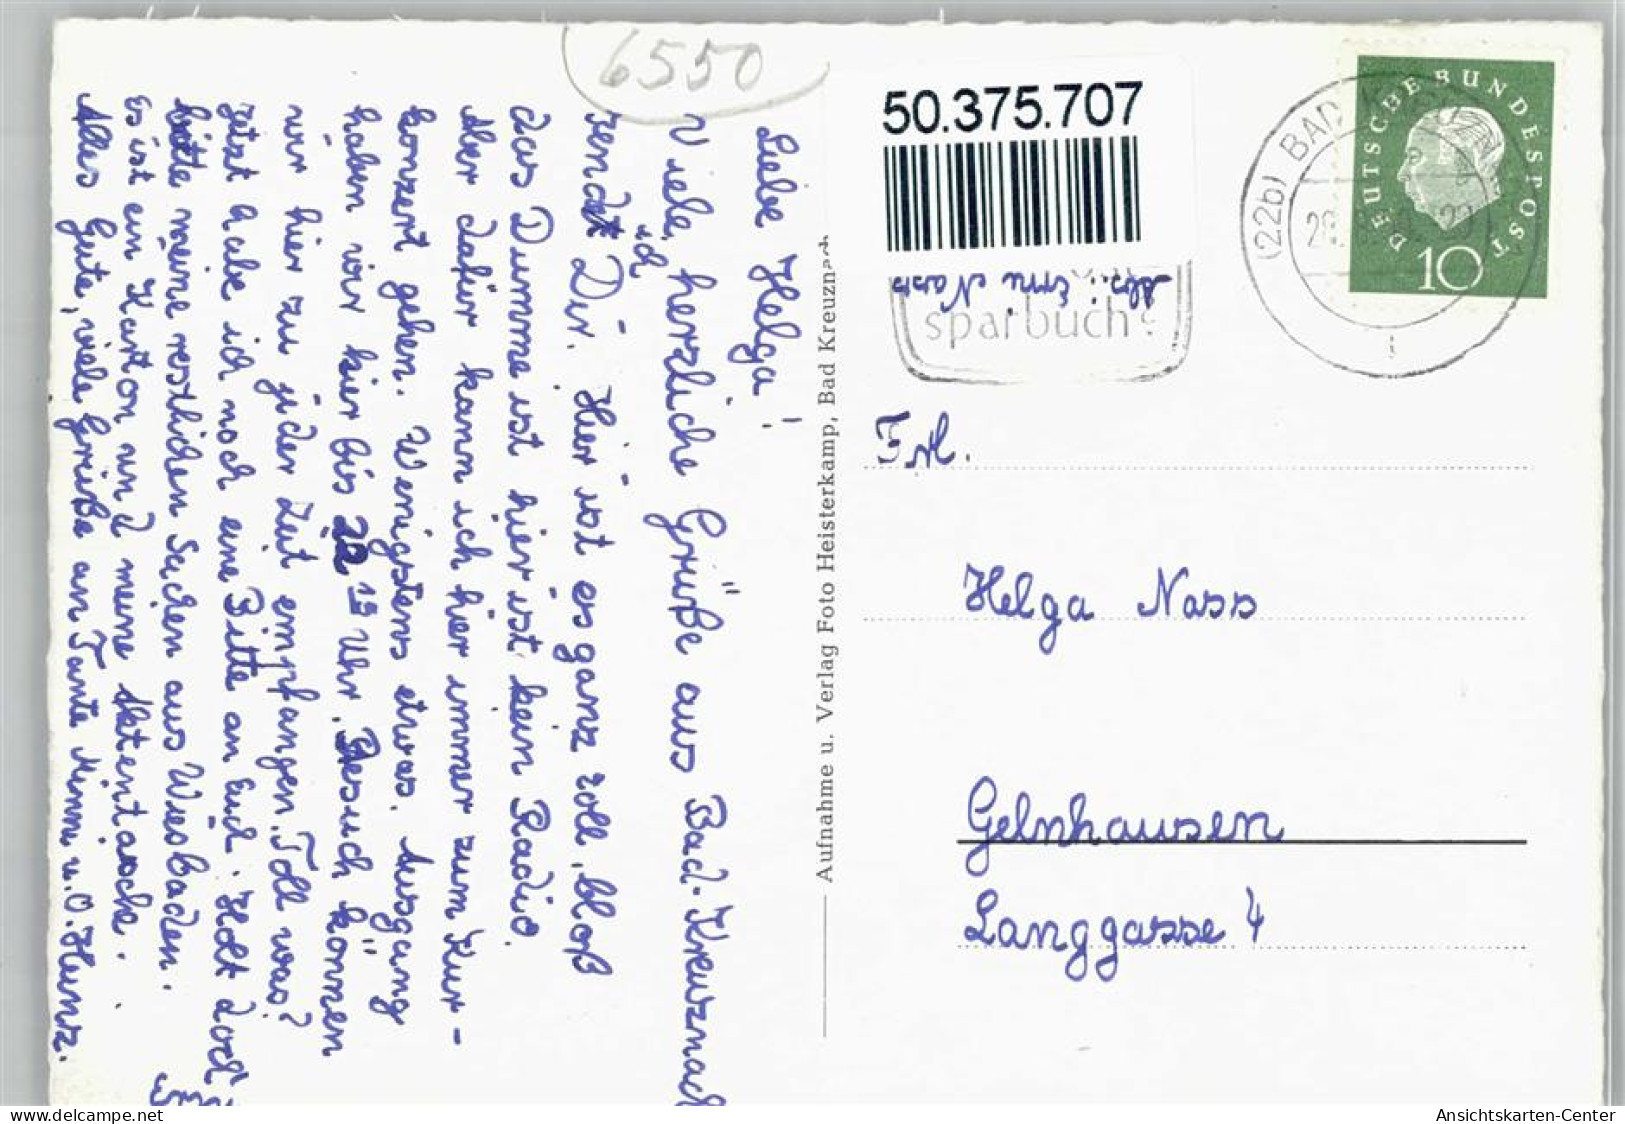 6550
Liebe Helga!
Viele, herzliche Grüße aus Bad-Kreuznach
sendet Dir. Hier ist es ganz toll, bloß
ich
das Dumme ist hier ist kein Radio.
Aber dafür kann ich hier immer zum Kur-
konzert gehen. Wenigstens etwas. Ausgang
haben wir hier bis 22 Uhr, Besuch können
wir hier zu jeder Zeit empfangen. Toll was?
Jetzt habe ich noch eine Bitte an Euch. Holt doch
bitte meine restlichen Sachen aus Wiesbaden.
Es ist ein Karton und meine Aktentasche.
Alles Gute, viele Grüße an Tante Minni u. O. Heinz.
Aufnahme u. Verlag Foto Heisterkamp, Bad Kreuznach
50.375.707
Abs.: Erni Nass
sparbuch
(22b) BAD
DEUTSCHE BUNDESPOST
10
Frl.
Helga Nass
Gelnhausen
Langgasse 4
www.oldthing.de
Ansichtskarten-Center